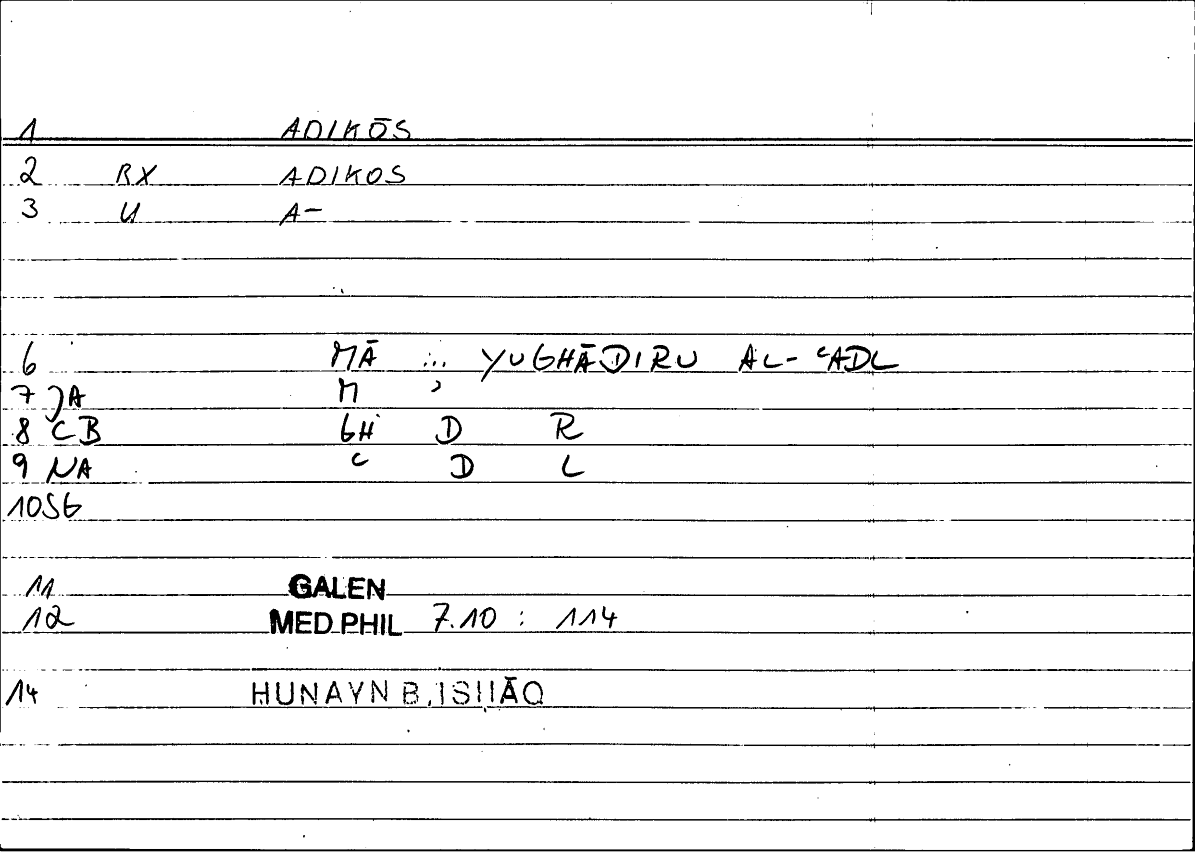 1 ADIKŌS
2 RX ADIKOS
3 U A-
6 MĀ ... YUGHĀDIRU AL-ʿADL
7 JA M ʾ
8 CB GH D R
9 NA ʿ D L
10 SG
11 GALEN
12 MED PHIL 7.10 : 114
14 HUNAYN B. ISḤĀQ